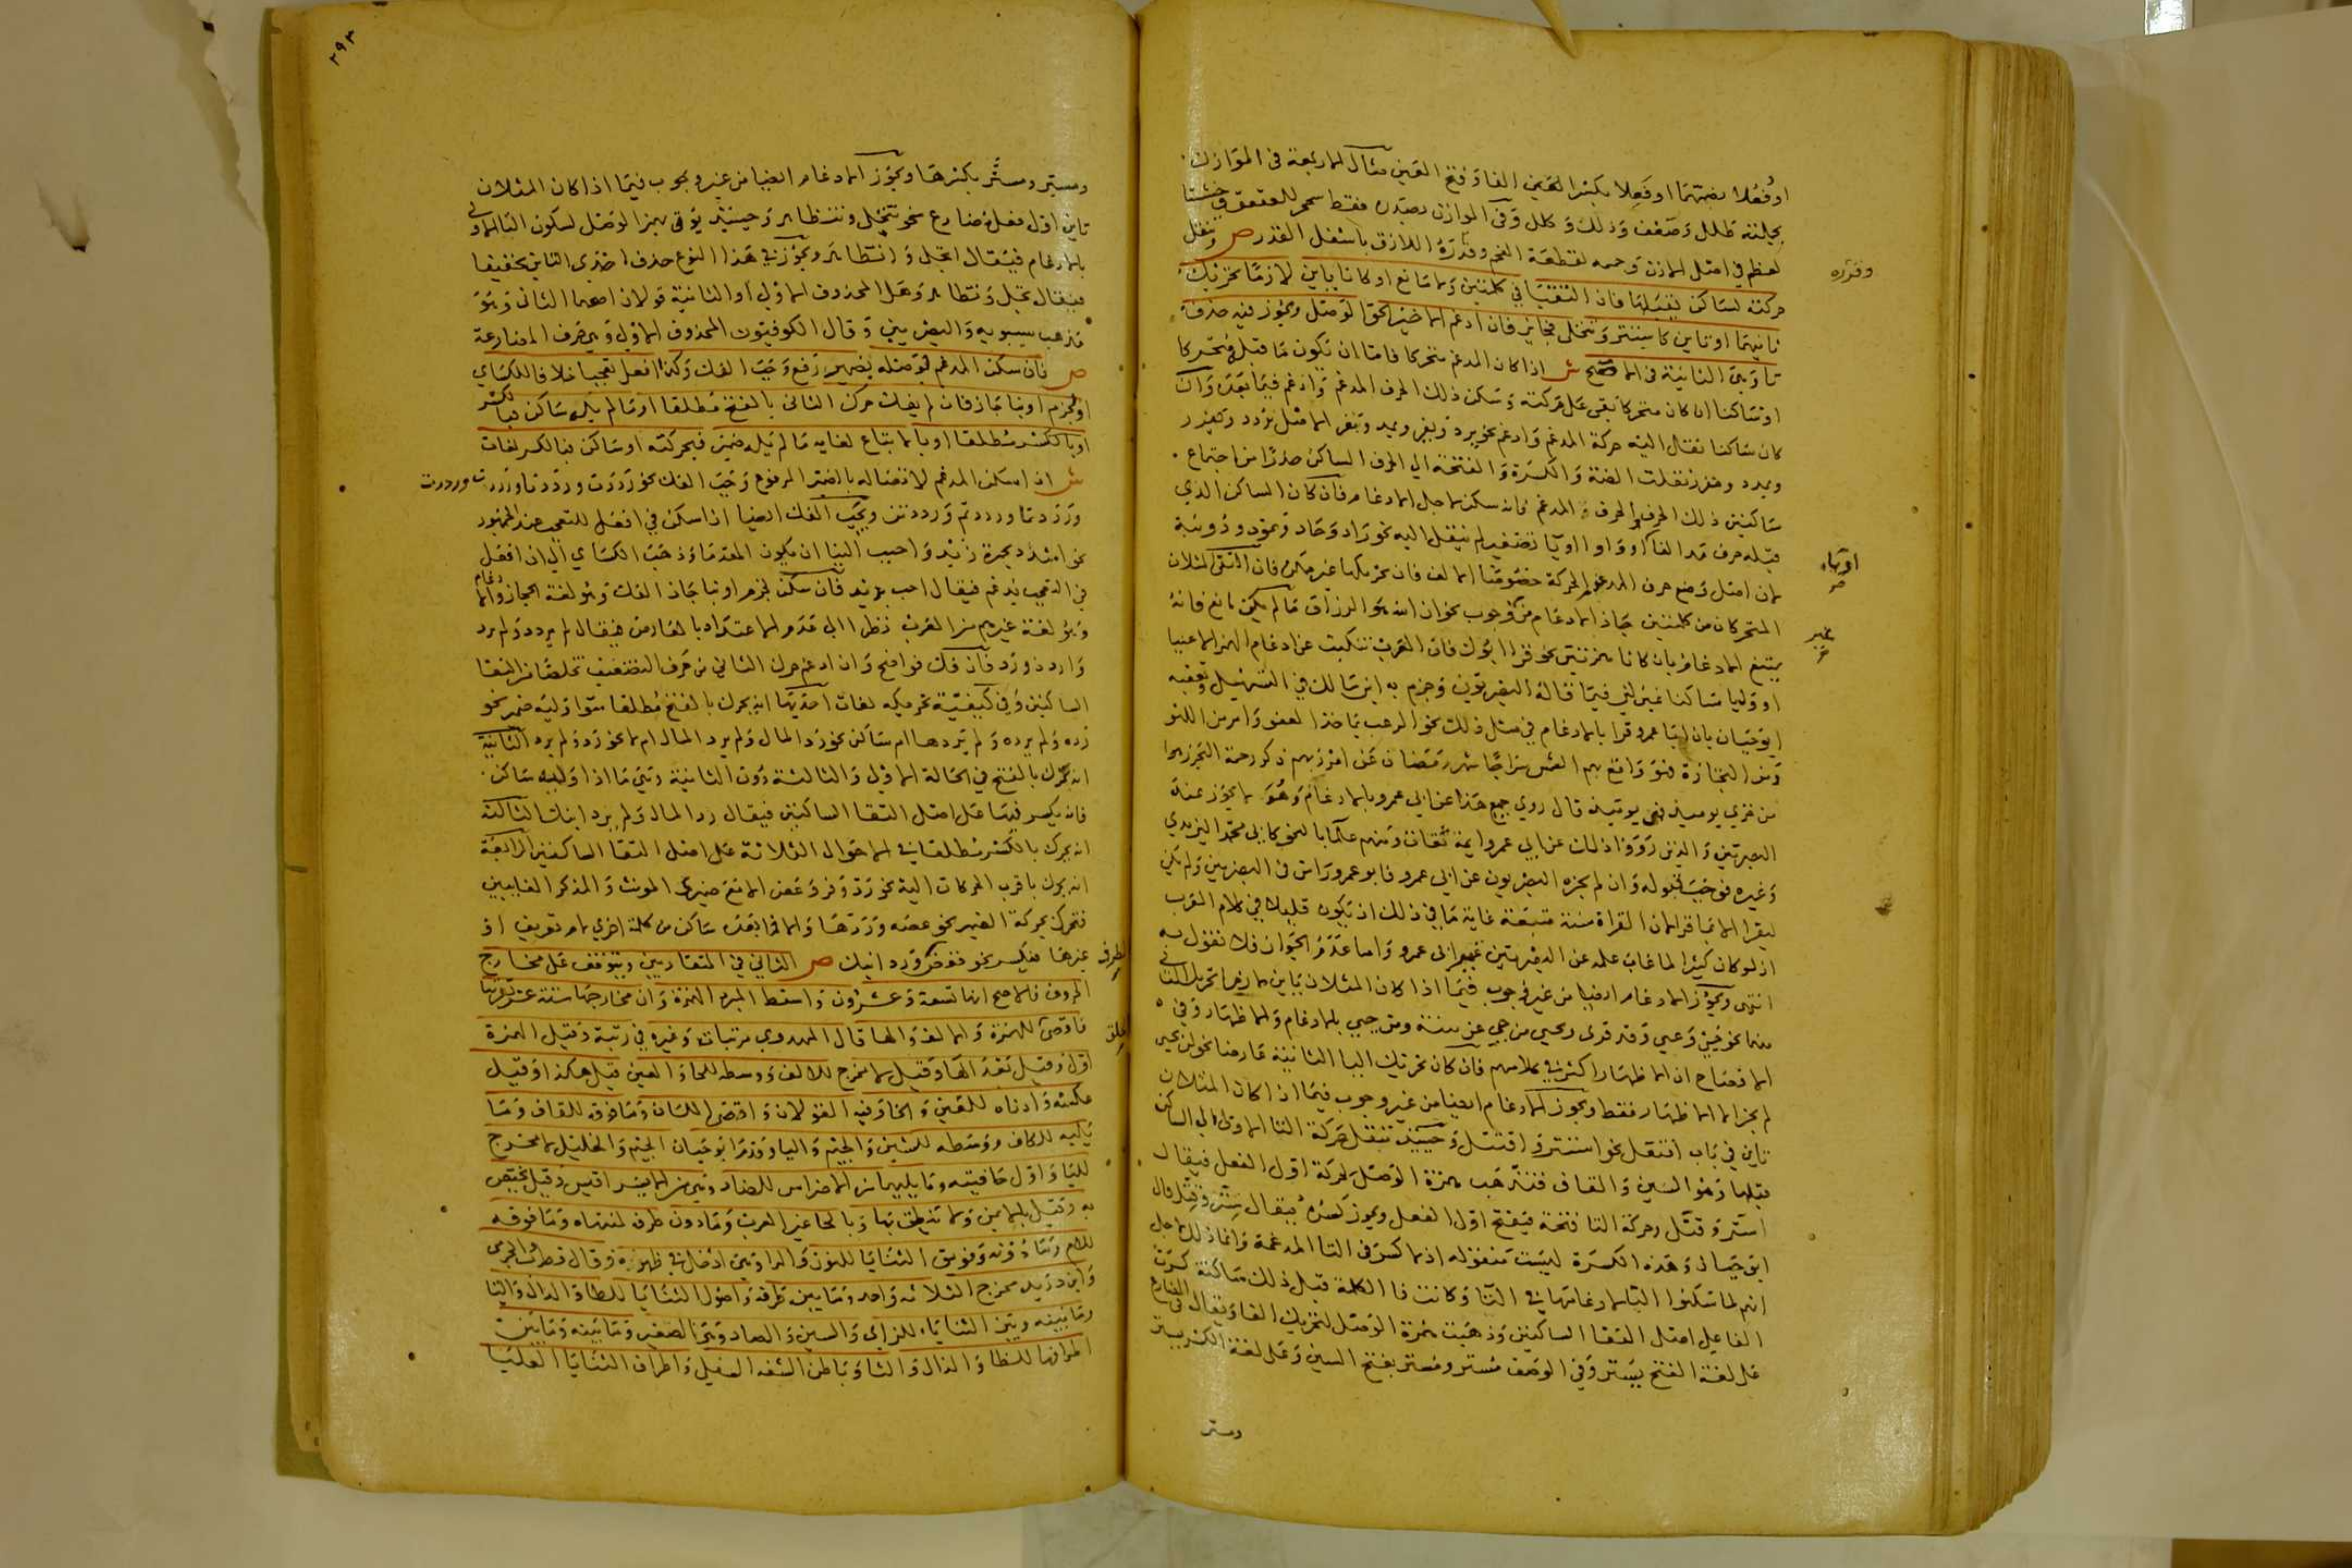 او فُعُلا بضمتهما او فَعِلا بكسر العين الفا وفتح العين مثال الاربعة في الموازن
كجلته طلل وضعف وذلك وكلل وفي الموازن بصدره فقط
لعظم في اصل الاذن وجمه لقطعة الفحم وقدرة اللازق باسفل القدر ص وتنقل
وقدره
حركته لساكن قبلها فان التقيا في كلمتين ولا مانع او كانا يايين لازما تحريك
ثانيهما او تاين كاستتر وتتجلى فجايز فان ادغم الماضي الحق الوصل ويجوز فيه حذف
تا وهي الثانية في الاصح ش اذا كان المدغم متحركا فاما ان يكون ما قبله متحركا
او ساكنا ان كان متحركا بقي على حركته وسكن ذلك الحرف المدغم وادغم فيما بعده وان
كان ساكنا نقل اليه حركة المدغم وادغم نحو يرد ويفر ويمد ويفر الاصل يردد ويفرر
ويمدد ويفرر نقلت الضمة والكسرة والفتحة الي الحرف الساكن حذرا من اجتماع
ساكنين ذلك الحرف والحرف المدغم فانه سكن لاجل الادغام فان كان الساكن الذي
قبله حرف مد الفا او واوا او يا تصغير لم ينقل اليه نحو راد وحاد وتمود ودويبة
او ياء
لان اصل وضع حرف المد عدم الحركة خصوصا الالف فان تحريكها غير ممكن فان التقى المثلان
المتحركان من كلمتين جاز الادغام من غير وجوب نحو ان الله هو الرزاق ما لم يكن مانع فانه
غير
يمتنع الادغام بان كانا همزتين نحو قرا ابوك فان العرب تنكبت عن ادغام الهمز الا عينا
او وليا ساكنا غير لين فيما قاله البصريون وجزم به ابن مالك في التسهيل وتعقبه
ابو حيان بان ابا عمرو قرا بالادغام في مثل ذلك نحو الرعب بما خذ العفو وامر من اللهو
ومن التجارة فهو واقع بهم الشمس سراجا شهر رمضان عن امر ربهم ذكر رحمة البحر رهوا
من خزي يوميذ فهي يوميذ قال روي جميع هذا عن ابي عمرو بالادغام وهو لا يجوز عند
البصريين والذين رووا ذلك عن ابي عمرو ايمة ثقات ومنهم علما بالنحو كابي محمد اليزيدي
وغيره فوجب قبوله وان لم يجزه البصريون غير ابي عمرو فابو عمرو راس في البصريين ولم يكن
ليقرا الا بما قرا لان القراة سنة متبعة غاية ما في ذلك ان يكون قليلا في كلام العرب
اذ لو كان كثيرا لما غاب علمه عن البصريين غير ابي عمرو واما عدم الجواز فلا نقول به
انتهى ويجوز الادغام ايضا من غير وجوب فيما اذا كان المثلان يايين لازما تحريك الثاني
منهما نحو حيي وعيي وقد قري ويحيى من حي عن بينة ومن حيي بالادغام والاظهار وفي
الافصاح ان الاظهار اكثر في كلامهم فان كان تحريك اليا الثانية عارضا نحو لن يحيي
لم يجز الا الاظهار فقط ويجوز الادغام ايضا من غير وجوب فيما اذا كان المثلان
تاين في باب افتعل نحو استتر واقتتل وحينيذ تنقل حركة التا الاولى الي الساكن
قبلها وهو السين والقاف فتذهب همزة الوصل لحركة اول الفعل فيقال
ستر وقتل وحركة التا فتحة فيفتح اول الفعل ويجوز كسره فيقال سِتر وقِتل قال
ابو حيان وهذه الكسرة ليست منقولة اذ لا كسر في التا المدغمة وانما ذلك لاجل
انهم لما سكنوا التا لادغامها في التا وكانت فا الكلمة قبل ذلك ساكنة كسرت
الفا على اصل التقا الساكنين وذهبت همزة الوصل لتحريك الفا ويقال في المضارع
على لغة الفتح يستر وفي الوصف مستر ومستر بفتح السين وعلى لغة الكسر يستر
ومستر
٢٩٣
ومستر ومستر بكسرها ويجوز الادغام ايضا من غير وجوب فيما اذا كان المثلان
تاين اول فعل مضارع نحو تتجلى وتتظاهر وحينيذ يؤتى بهمز الوصل لسكون التا الاولى
بالادغام فيقال اتجلى واتظاهر ويجوز في هذا النوع حذف احدى التاين تخفيفا
فيقال تجلى وتظاهر وهل المحذوف الاولى او الثانية قولان اصحهما الثاني وهو
مذهب سيبويه والبصريين وقال الكوفيون المحذوف الاولى وهي حرف المضارعة
ص فان سكن المدغم فيه لوصله بضمير رفع وجب الفك وكذا افعل تعجبا خلافا للكساي
او لجزم او بنا جاز فان لم يفك حرك الثاني بالفتح مطلقا او ما لم يله ساكن فبالكسر
او بالكسر مطلقا او بالاتباع لفايه ما لم يله ضمير فبحركته او ساكن فبالكسر لغات
ش اذا سكن المدغم لاتصاله بالضمير المرفوع وجب الفك نحو رددت ورددنا ورددت ورددت
ورددتما ورددتم ورددتن ويجب الفك ايضا اذا سكن في افعل للتعجب عند الجمهور
نحو اشدد بحمرة زيد واحبب الينا ان يكون المقدما وذهب الكساي الي ان افعل
في التعجب يدغم فيقال احب بزيد فان سكن لجزم او بنا جاز الفك وهو لغة الحجاز والادغام
وهو لغة غيرهم من العرب نظرا الي عدم الاعتداد بالعارض فيقال لم يردد ولم يرد
واردد ورد فان فك فواضح وان ادغم حرك الثاني من حرف التضعيف تخلصا من التقا
الساكنين وفي كيفية تحريكه لغات احديها انه يحرك بالفتح مطلقا سوا وليه ضمير نحو
رده ولم يرده ولم يردها ام ساكن نحو رد المال ولم يرد المال ام لا نحو رد ولم يرد الثانية
انه يحرك بالفتح في الحالة الاولى والثالثة دون الثانية وهي ما اذا وليه ساكن
فانه يكسر فيها على اصل التقا الساكنين فيقال رد المال ولم يرد ابنك الثالثة
انه يحرك بالكسر مطلقا في الاحوال الثلاثة على اصل التقا الساكنين الرابعة
انه يحرك باقرب الحركات اليه نحو رد وفر وعض الا مع ضميري المونث والمذكر الغايبين
فتحرك بحركة الضمير نحو عضه وردها والا فيما بعده ساكن من كلمة اخرى لام تعريف او
غيرها فيكسر نحو فغض الطرف ورد ابنك ص الثاني في المتقاربين ويتوقف على مخارج
الحروف فالاصح انها تسعة وعشرون واسقط المبرد الهمزة وان مخارجها ستة عشر تقريبا
فاقصى الحلق للهمزة والالف والها قال المهدوي مرتبات وغيره في رتبة وقيل الهمزة
اول وقيل بعد الها وقيل لا مخرج للالف ووسطه للحا والعين قيل هكذا وقيل
عكسه وادناه للغين والخا وفيه القولان واقصى اللسان وما فوقه للقاف وما
يليه للكاف ووسطه للشين والجيم واليا وقدم ابو حيان الجيم والخليل لا مخرج
لليا واول حافته وما يليها من الاضراس للضاد وهي من الايسر اقيس وقيل يختص
به وقيل بالايمن ولا تنطق بها وبالحا غير العرب وما دون طرفه لمنتهاه وما فوقه
للام وما دونه وفويق الثنايا للنون والرا وهي ادخل في ظهره وقال قطرب والجرمي
وابن دريد مخرج الثلاثه واحد وما بين طرفه واصول الثنايا للطا والدال والتا
وما بينه وبين الثنايا للزاي والسين والصاد وهي الصفير وما بينه وما بين
اطرافها للظا والذال والثا وباطن الشفه السفلى واطراف الثنايا العليا